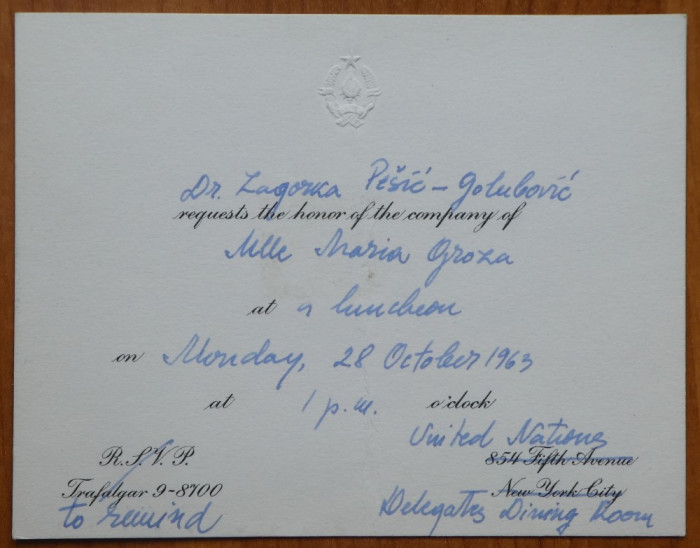 Dr. Zagorka Pešić-Golubović
requests the honor of the company of
Mlle Maria Groza
at a luncheon
on Monday, 28 October 1963
at 1 p.m. o'clock
United Nations
R.S.V.P. 854 Fifth Avenue
Trafalgar 9-8700 New York City
to remind Delegates Dining Room